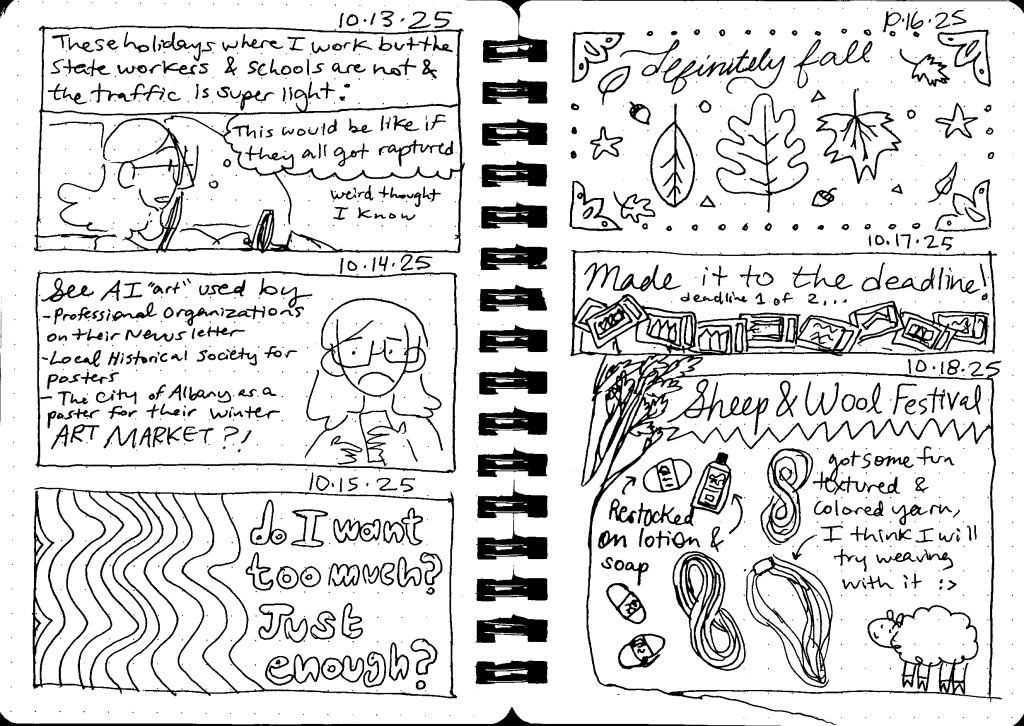 10.13.25
These holidays where I work but the
state workers & schools are not &
the traffic is super light:
This would be like if
they all got raptured
weird thought
I know
10.14.25
See AI "art" used by
- Professional Organizations
on their News letter
- Local Historical Society for
posters
- The City of Albany as a
poster for their winter
ART MARKET?!
10.15.25
do I want
too much?
Just
enough?
10.16.25
definitely fall
10.17.25
Made it to the deadline!
deadline 1 of 2...
10.18.25
Sheep & Wool Festival
Restocked
on lotion &
soap
got some fun
textured &
colored yarn,
I think I will
try weaving
with it :>